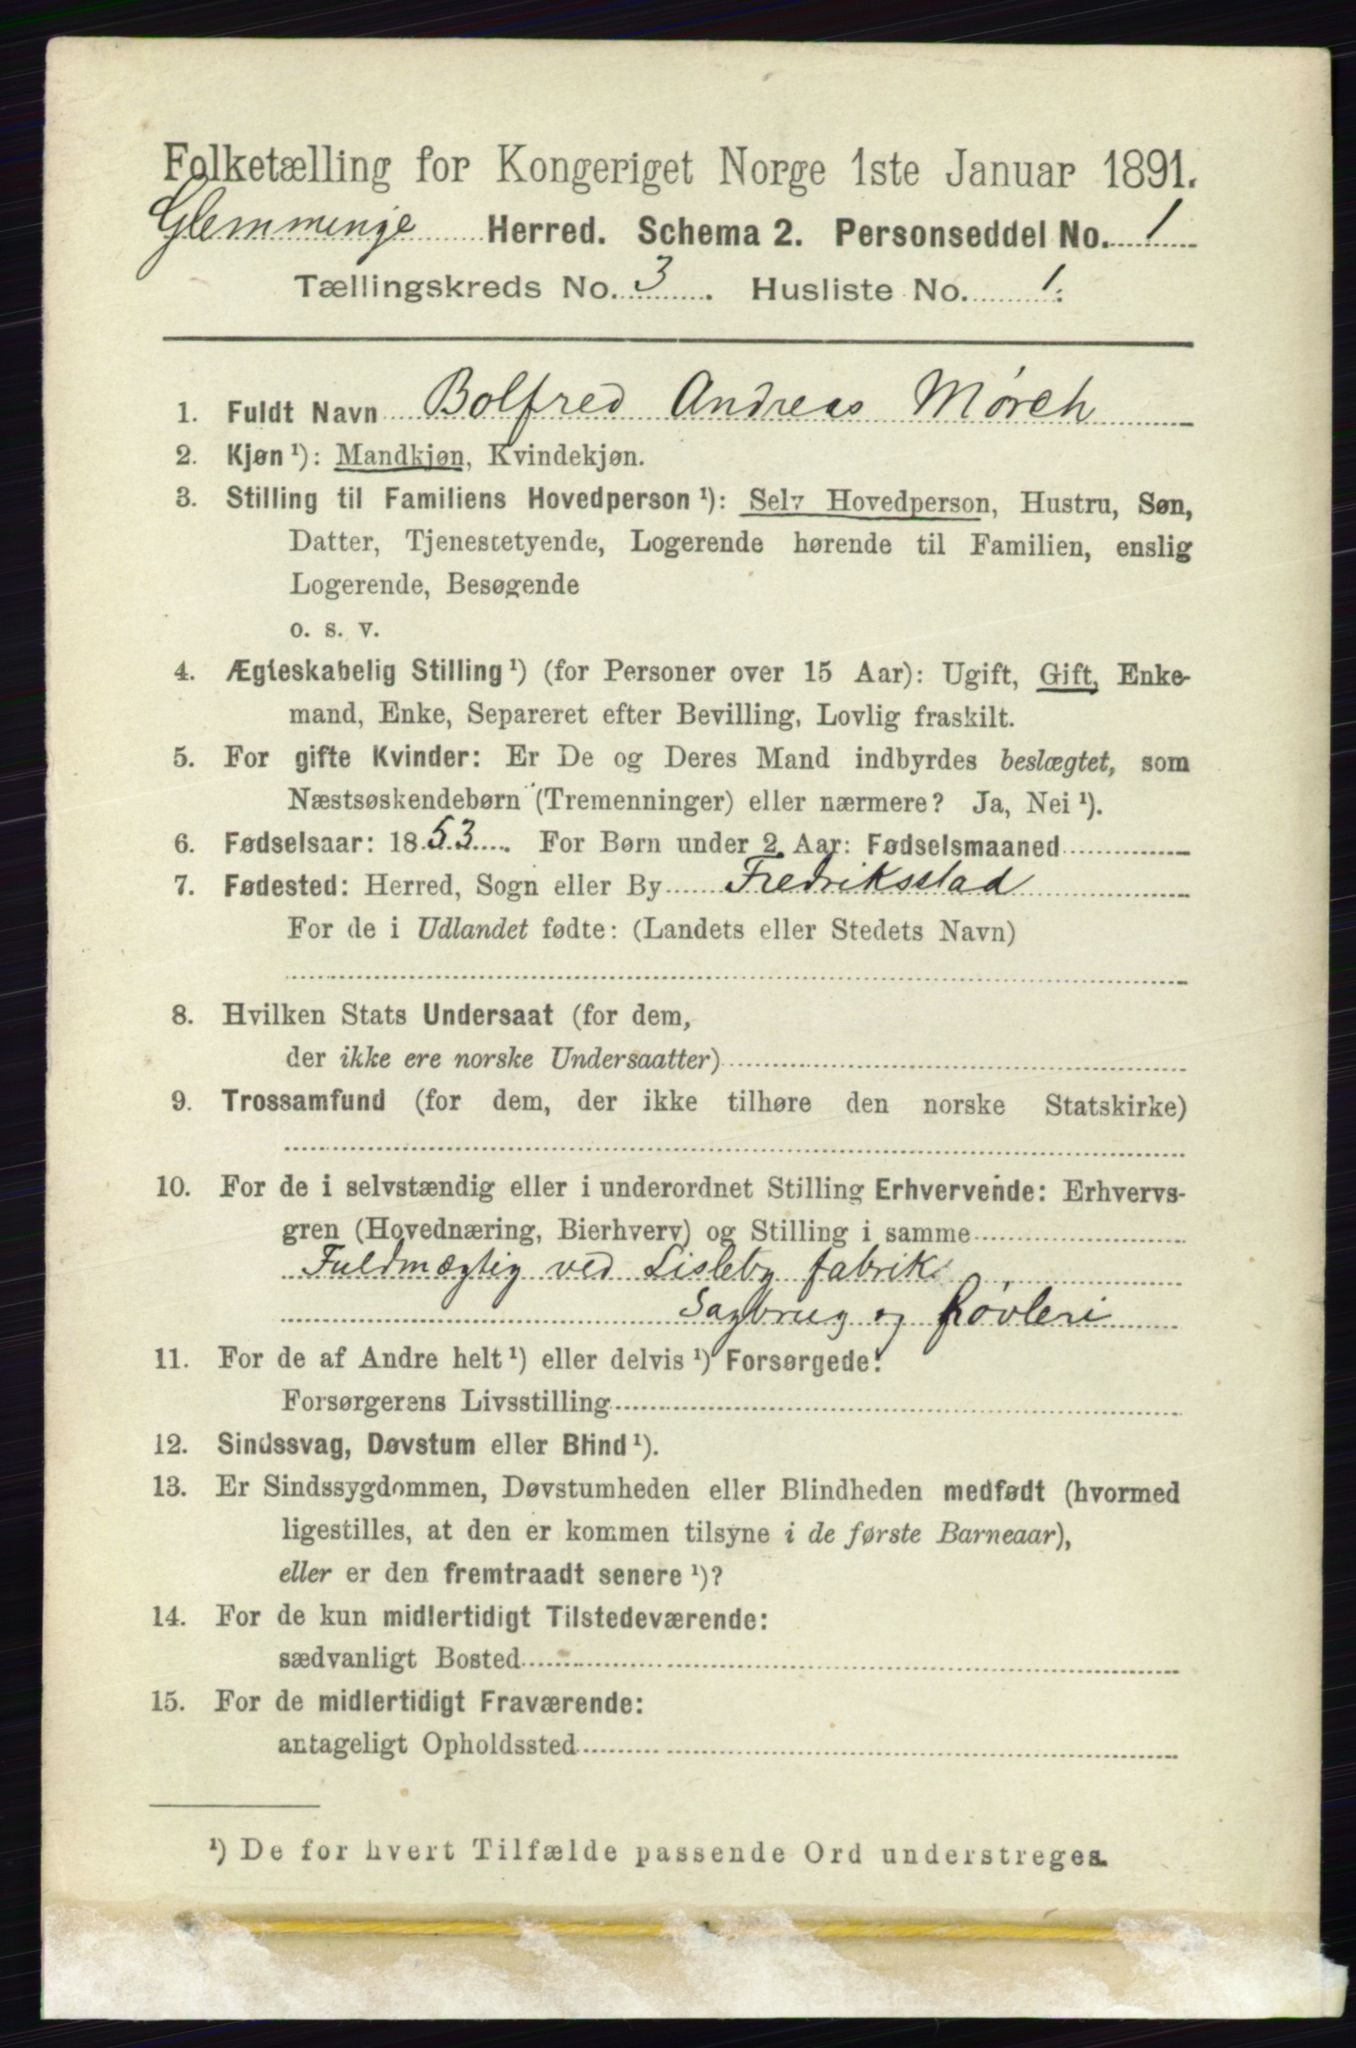 Folketælling for Kongeriget Norge 1ste Januar 1891.
Glemminge Herred. Schema 2. Personseddel No. 1
Tællingskreds No. 3. Husliste No. 1.
1. Fuldt Navn Bolfred Andreas Mørch
2. Kjøn ¹): Mandkjøn, Kvindekjøn.
3. Stilling til Familiens Hovedperson ¹): Selv Hovedperson, Hustru, Søn,
Datter, Tjenestetyende, Logerende hørende til Familien, enslig
Logerende, Besøgende
o. s. v.
4. Ægteskabelig Stilling ¹) (for Personer over 15 Aar): Ugift, Gift, Enke-
mand, Enke, Separeret efter Bevilling, Lovlig fraskilt.
5. For gifte Kvinder: Er De og Deres Mand indbyrdes beslægtet, som
Næstsøskendebørn (Tremenninger) eller nærmere? Ja, Nei ¹).
6. Fødselsaar: 1853. For Børn under 2 Aar: Fødselsmaaned
7. Fødested: Herred, Sogn eller By Fredriksstad
For de i Udlandet fødte: (Landets eller Stedets Navn)
8. Hvilken Stats Undersaat (for dem,
der ikke ere norske Undersaatter)
9. Trossamfund (for dem, der ikke tilhøre den norske Statskirke)
10. For de i selvstændig eller i underordnet Stilling Erhvervende: Erhvervs-
gren (Hovednæring, Bierhverv) og Stilling i samme
Fuldmægtig ved Lisleby fabrik
Sagbrug og Høvleri
11. For de af Andre helt ¹) eller delvis ¹) Forsørgede:
Forsørgerens Livsstilling
12. Sindssvag, Døvstum eller Blind ¹).
13. Er Sindssygdommen, Døvstumheden eller Blindheden medfødt (hvormed
ligestilles, at den er kommen tilsyne i de første Barneaar),
eller er den fremtraadt senere ¹)?
14. For de kun midlertidigt Tilstedeværende:
sædvanligt Bosted
15. For de midlertidigt Fraværende:
antageligt Opholdssted
¹) De for hvert Tilfælde passende Ord understreges.